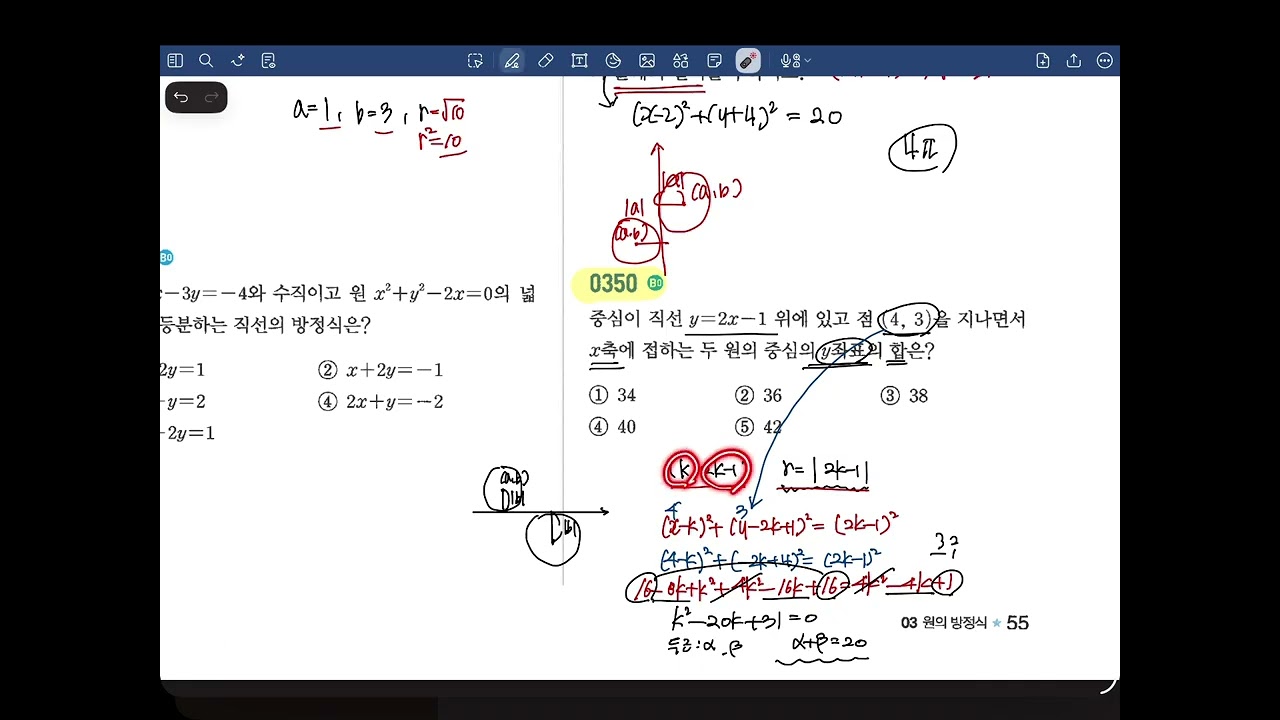 a=1, b=3, r=√10
r²=10
B0
-3y=-4와 수직이고 원 x²+y²-2x=0의 넓
등분하는 직선의 방정식은?
2y=1
② x+2y=-1
-y=2
④ 2x+y=-2
-2y=1
(a,b)
|b|
|b|
(x-2)²+(y+4)²=20
4π
|a|
(a,b)
|a|
(a,b)
0350 B0
중심이 직선 y=2x-1 위에 있고 점 (4, 3)을 지나면서
x축에 접하는 두 원의 중심의 y좌표의 합은?
① 34
② 36
③ 38
④ 40
⑤ 42
k
k-1
r=|2k-1|
4
3
(x-k)²+(y-2k+1)²=(2k-1)²
(4-k)²+(-2k+4)²=(2k-1)²
3?
16-8k+k²+4k²-16k+16=4k²-4k+1
k²-20k+31=0
두근:α, β
α+β=20
03 원의 방정식 ★ 55